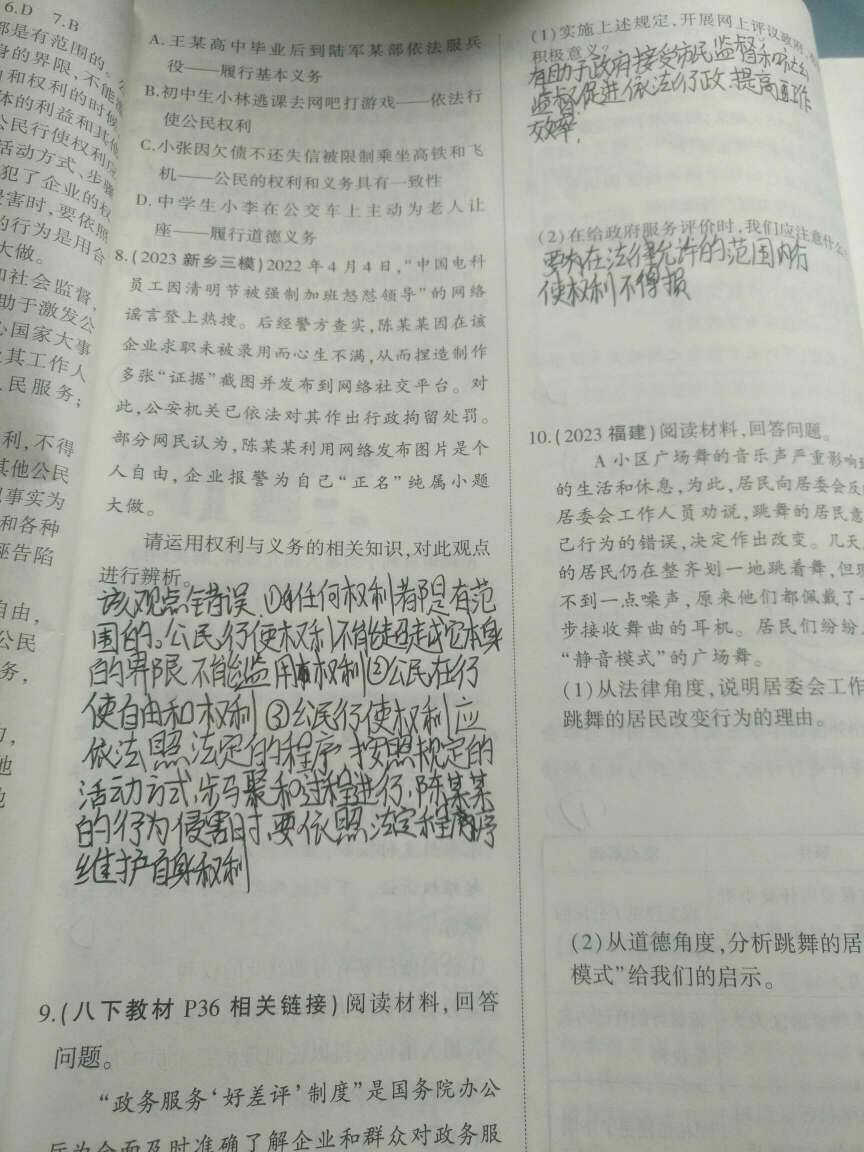 6.D 7.B
都是有范围的。公
身的界限,不能
和权利的时候
体的利益和其他
公民行使权利应
活动方式、步骤
犯了企业的权
害时,要依照
的行为是用合
大做。
和社会监督,
助于激发公
心国家大事
及其工作人
人民服务;
利,不得
其他公民
事实为
和各种
诬告陷
自由,
公民
务,
A.王某高中毕业后到陆军某部依法服兵
役——履行基本义务
B.初中生小林逃课去网吧打游戏——依法行
使公民权利
C.小张因欠债不还失信被限制乘坐高铁和飞
机——公民的权利和义务具有一致性
D.中学生小李在公交车上主动为老人让
座——履行道德义务
8.(2023 新乡三模)2022年4月4日,“中国电科
员工因清明节被强制加班怒怼领导”的网络
谣言登上热搜。后经警方查实,陈某某因在该
企业求职未被录用而心生不满,从而捏造制作
多张“证据”截图并发布到网络社交平台。对
此,公安机关已依法对其作出行政拘留处罚。
部分网民认为,陈某某利用网络发布图片是个
人自由,企业报警为自己“正名”纯属小题
大做。
请运用权利与义务的相关知识,对此观点
进行辨析。
该观点错误.①任何权利都是有范
围的。公民行使权利不能超越它本身
的界限,不能滥用权利②公民在行
使自由和权利 ③公民行使权利应
依法照法定的程序,按照规定的
活动方式,步骤和过程进行,陈某某
的行为侵害时,要依照法定程序
维护自身权利
9.(八下教材 P36 相关链接)阅读材料,回答
问题。
“政务服务‘好差评’制度”是国务院办公
厅为全面及时准确了解企业和群众对政务服
(1)实施上述规定,开展网上评议政府,有
积极意义?
有助于政府接受市民监督和社会
监督,促进依法行政.提高工作
效率.
(2)在给政府服务评价时,我们应注意什么
要在法律允许的范围内行
使权利不得损
10.(2023 福建)阅读材料,回答问题。
A小区广场舞的音乐声严重影响
的生活和休息,为此,居民向居委会反
居委会工作人员劝说,跳舞的居民意
己行为的错误,决定作出改变。几天
的居民仍在整齐划一地跳着舞,但
不到一点噪声,原来他们都佩戴了
步接收舞曲的耳机。居民们纷纷
“静音模式”的广场舞。
(1)从法律角度,说明居委会工作
跳舞的居民改变行为的理由。
(2)从道德角度,分析跳舞的居
模式”给我们的启示。